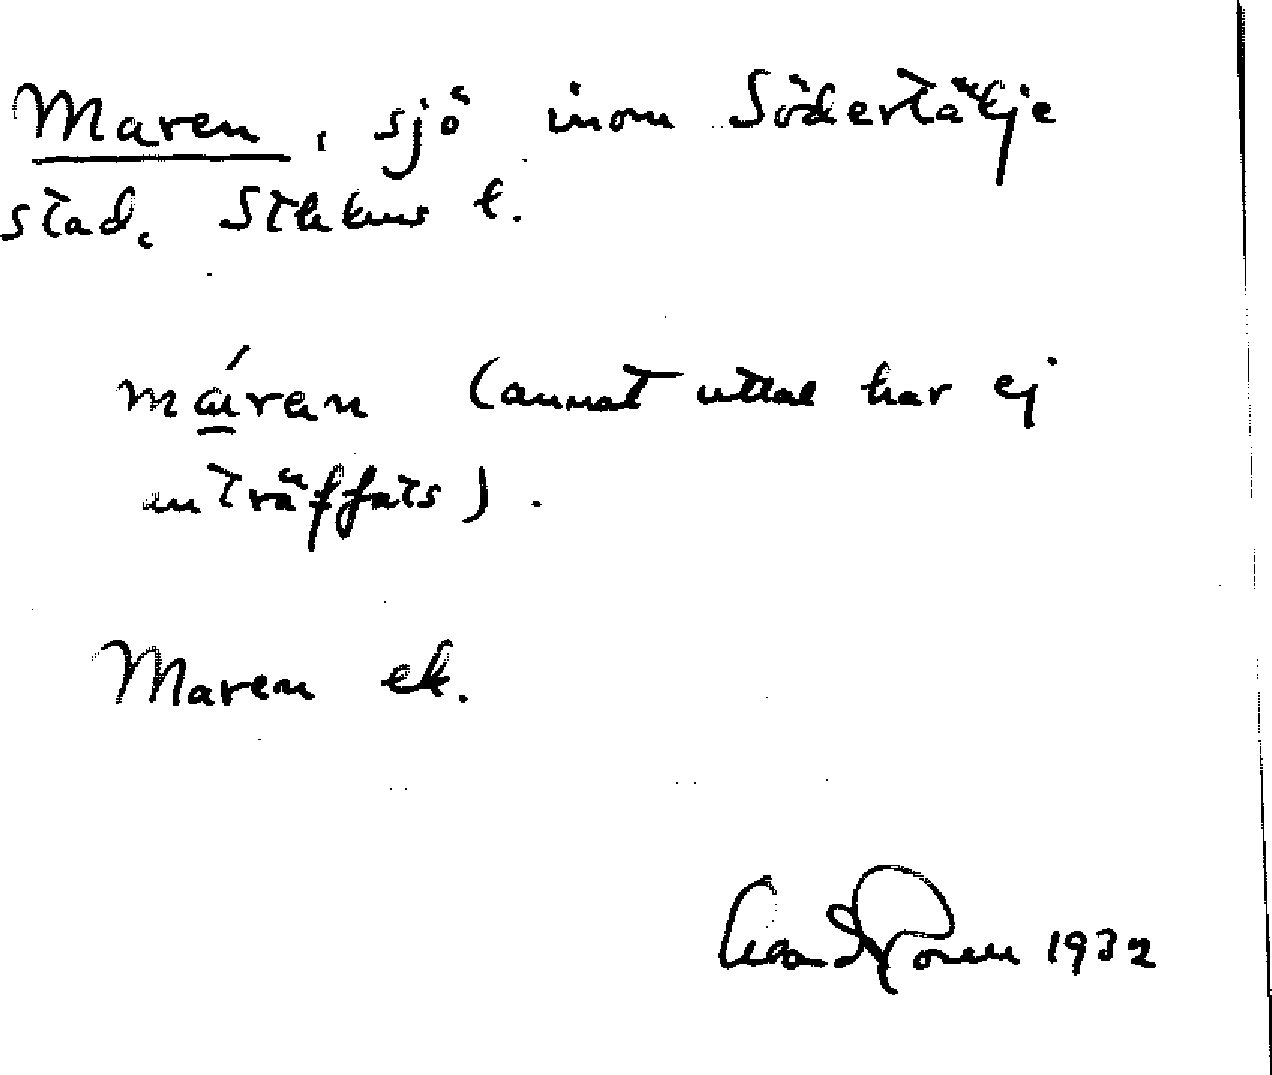 Maren, sjö inom Södertälje
stad, Sthlms l.
máren (annat uttal har ej
anträffats).
Maren ek.
1932